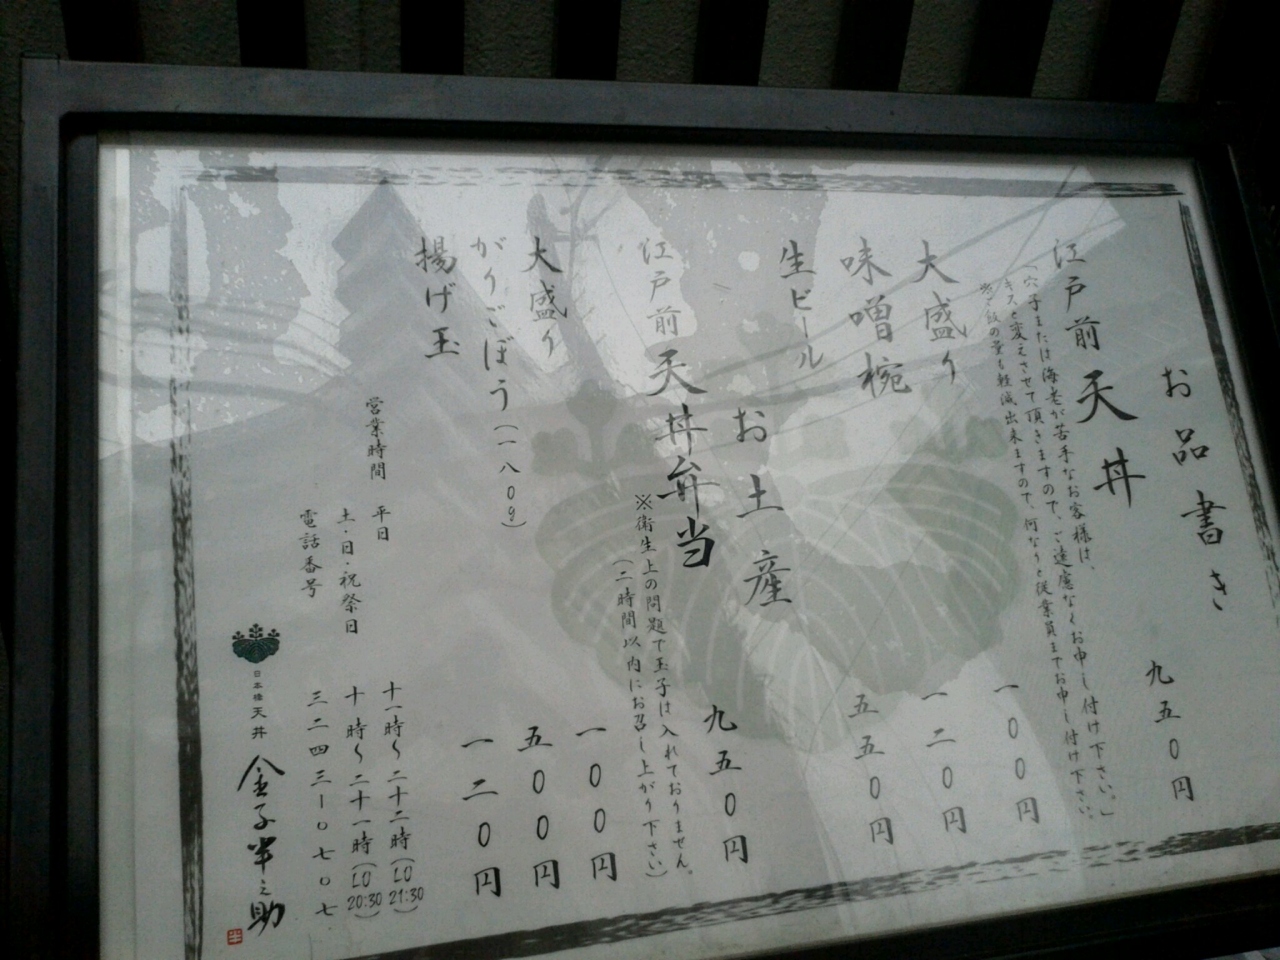 お品書き
江戸前天丼 九五〇円
(穴子または海老が苦手なお客様は、
キスと変えさせて頂きますので、ご遠慮なくお申し付け下さい。)
※ご飯の量も軽減出来ますので、何なりと従業員までお申し付け下さい。
大盛り 一〇〇円
味噌椀 一二〇円
生ビール 五五〇円
お土産
江戸前天丼弁当 九五〇円
※衛生上の問題で玉子は入れておりません。
(二時間以内にお召し上がり下さい)
大盛り 一〇〇円
がりごぼう(一八〇g) 五〇〇円
揚げ玉 一二〇円
営業時間 平日 十一時~二十二時(LO 21:30)
土・日・祝祭日 十時~二十一時(LO 20:30)
電話番号 三二四三ー〇七〇七
日本橋 天丼 金子半之助
半